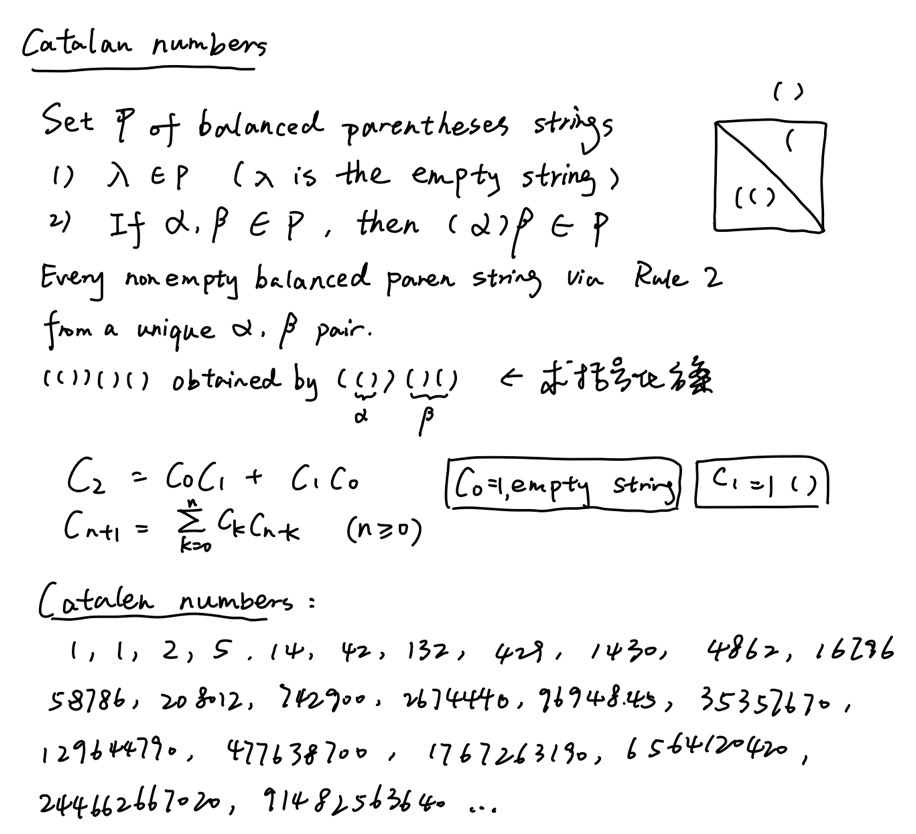 Catalan numbers
Set P of balanced parentheses strings
1) λ ∈ P (λ is the empty string)
2) If α, β ∈ P, then (α)β ∈ P
()
(
(()
Every nonempty balanced paren string via Rule 2
from a unique α, β pair.
(())()() obtained by (())()() ←
α β
C₂ = C₀C₁ + C₁C₀
C₀=1, empty string
C₁=1 ()
Cₙ₊₁ = Σₖ₌₀ⁿ CₖCₙ₋ₖ (n≥0)
Catalen numbers:
1, 1, 2, 5. 14, 42, 132, 429, 1430, 4862, 16796
58786, 208012, 742900, 2674440, 9694845, 35357670,
129644790, 477638700, 1767263190, 6564120420,
244662667020, 91482563640 ...